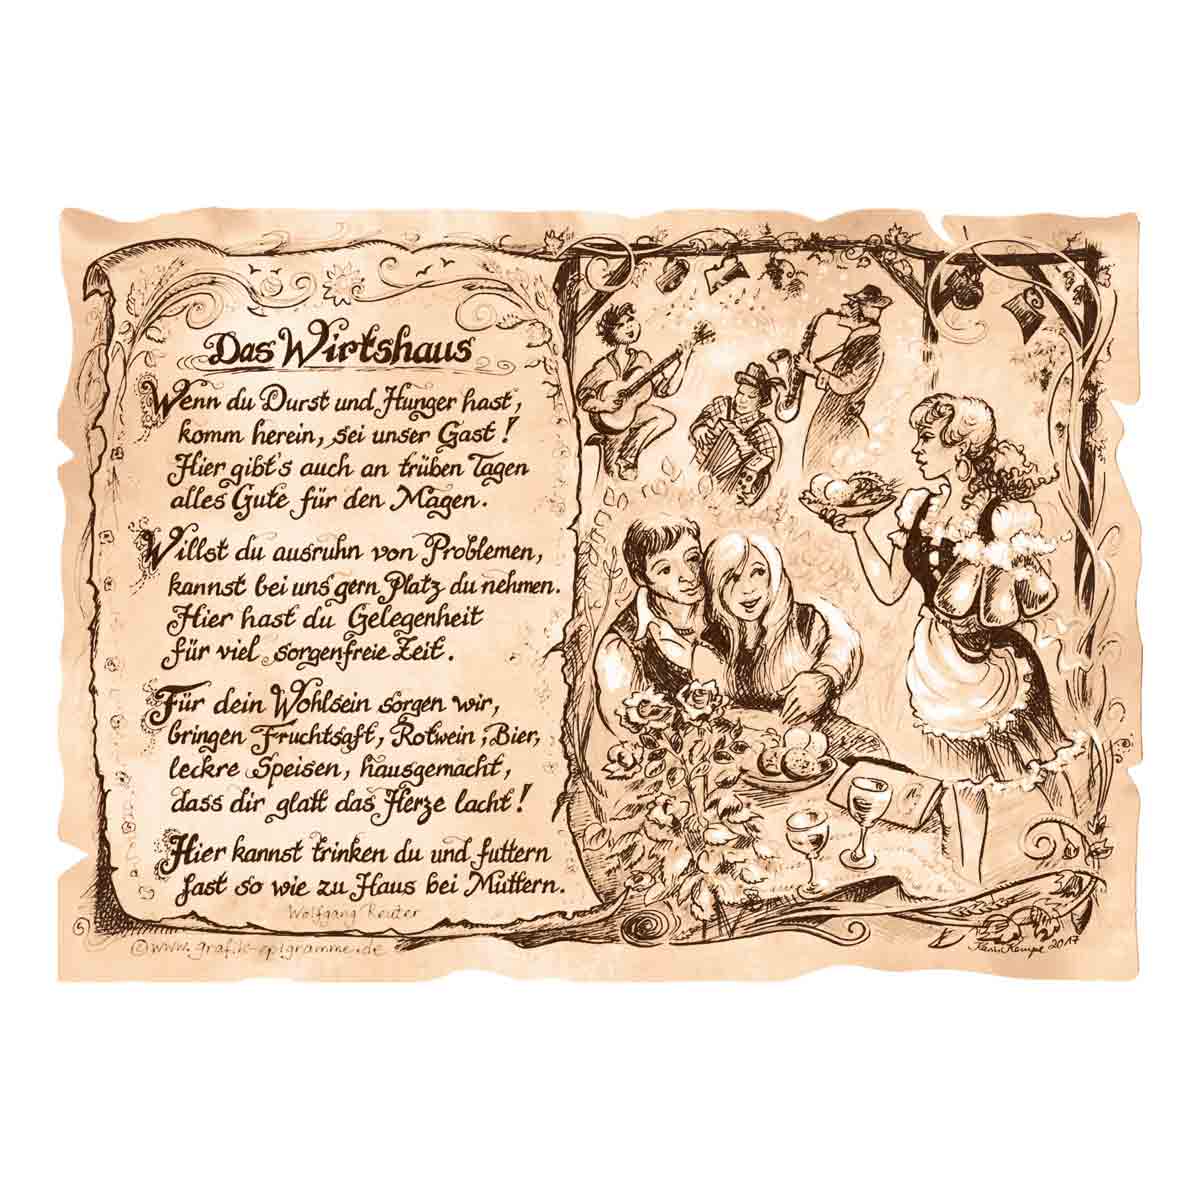 Das Wirtshaus
Wenn du Durst und Hunger hast,
komm herein, sei unser Gast!
Hier gibt's auch an trüben Tagen
alles Gute für den Magen.
Willst du ausruhn von Problemen,
kannst bei uns gern Platz du nehmen.
Hier hast du Gelegenheit
für viel sorgenfreie Zeit.
Für dein Wohlsein sorgen wir,
bringen Fruchtsaft, Rotwein, Bier,
leckre Speisen, hausgemacht,
dass dir glatt das Herze lacht!
Hier kannst trinken du und futtern
fast so wie zu Haus bei Muttern.
Wolfgang Reuter
5
©www.grafik-epigramme.de
Karin Kempe 2017